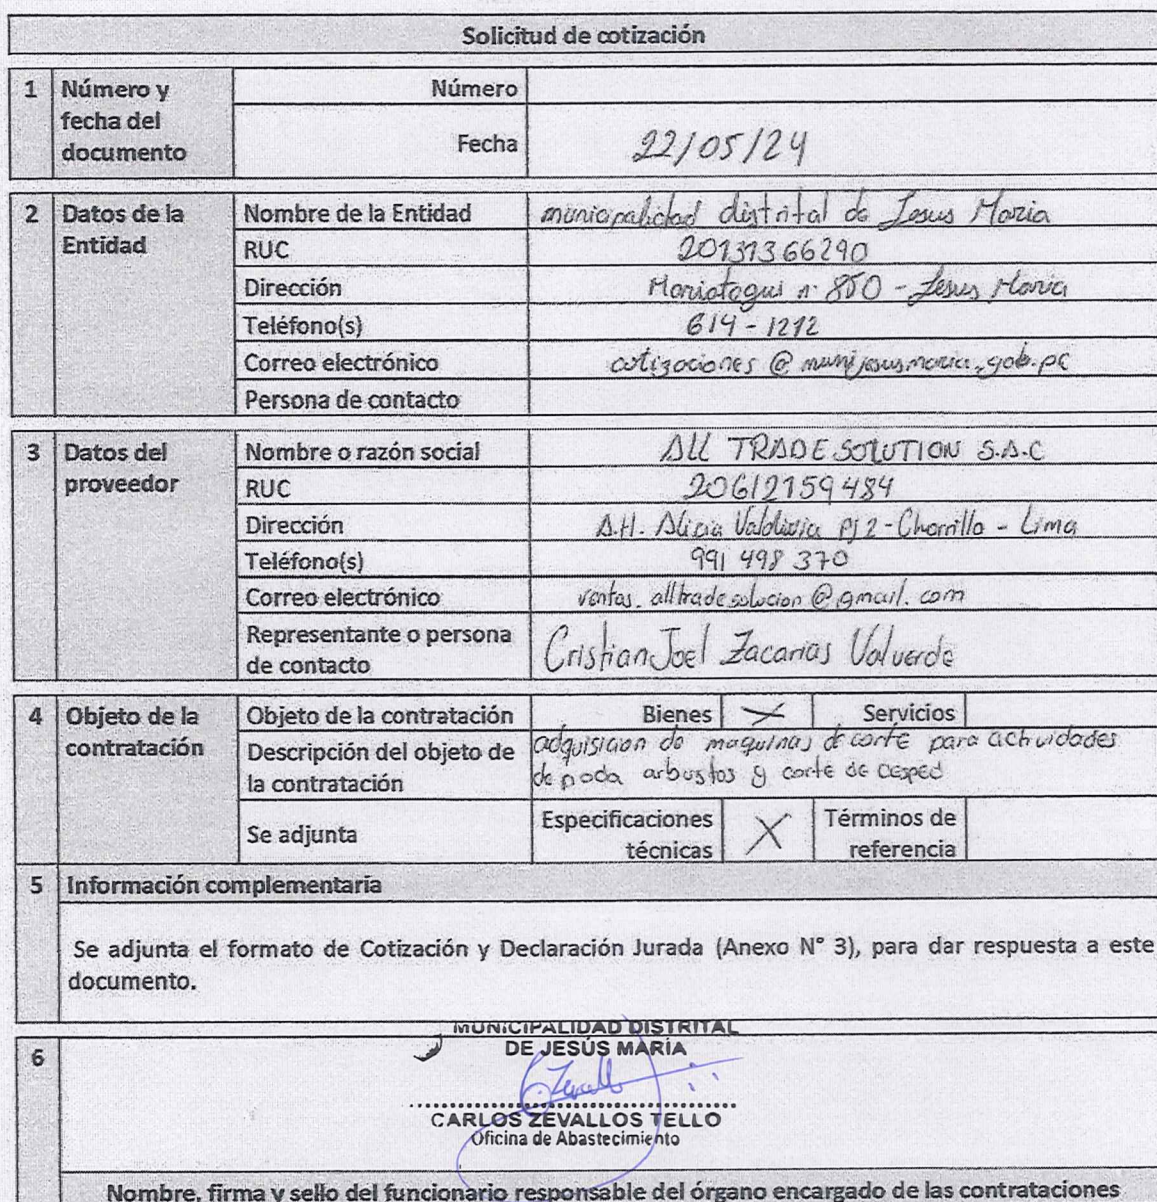 Solicitud de cotización
1 Número y fecha del documento
Número
Fecha 22/05/24
2 Datos de la Entidad
Nombre de la Entidad municipalidad distrital de Jesus Maria
RUC 20131366290
Dirección Mariategui n° 850 - Jesus Maria
Teléfono(s) 614-1212
Correo electrónico cotizaciones@munijesusmaria.gob.pe
Persona de contacto
3 Datos del proveedor
Nombre o razón social ALL TRADE SOLUTION S.A.C
RUC 20612159484
Dirección A.H. Alicia Valdivia PJ 2 - Chorrillo - Lima
Teléfono(s) 991 498 370
Correo electrónico ventas.alltradesolucion@gmail.com
Representante o persona de contacto Cristian Joel Zacarias Valverde
4 Objeto de la contratación
Objeto de la contratación Bienes X Servicios
Descripción del objeto de la contratación
adquisicion de maquinas de corte para actividades
de poda arbustos y corte de cesped
Se adjunta Especificaciones técnicas X Términos de referencia
5 Información complementaria
Se adjunta el formato de Cotización y Declaración Jurada (Anexo N° 3), para dar respuesta a este
documento.
6
MUNICIPALIDAD DISTRITAL
DE JESÚS MARÍA
CARLOS ZEVALLOS TELLO
Oficina de Abastecimiento
Nombre, firma y sello del funcionario responsable del órgano encargado de las contrataciones